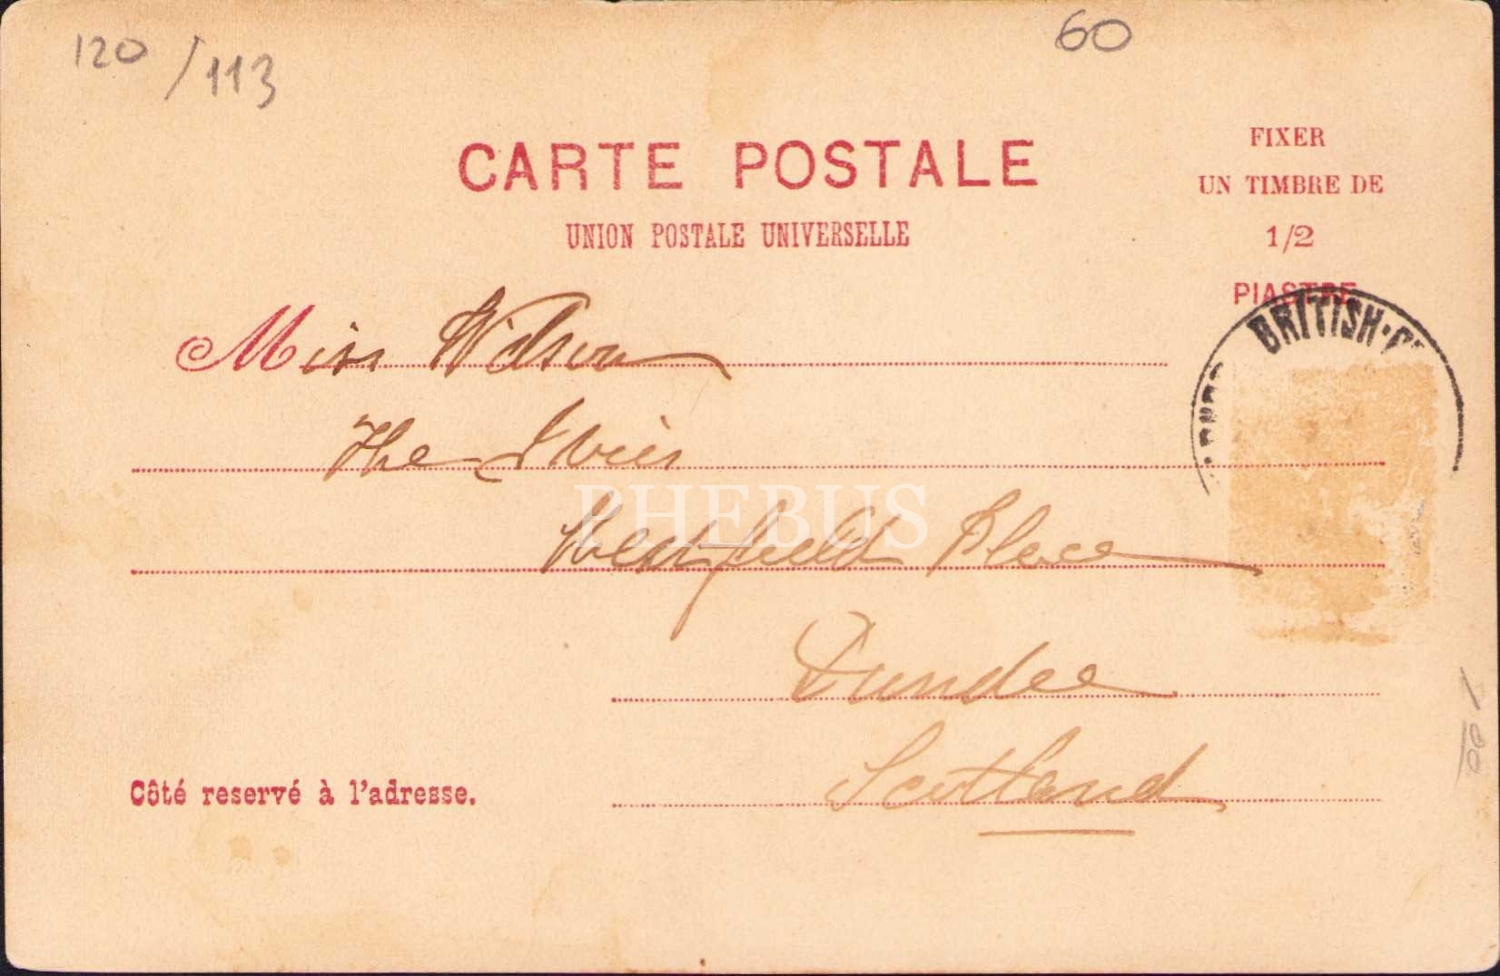 120 /113
60
CARTE POSTALE
UNION POSTALE UNIVERSELLE
FIXER
UN TIMBRE DE
1/2
PIASTRE
BRITISH
Miss Wilson
The Ivies
PHEBUS
Westfield Place
Dundee
Scotland
Côté reservé à l'adresse.
100